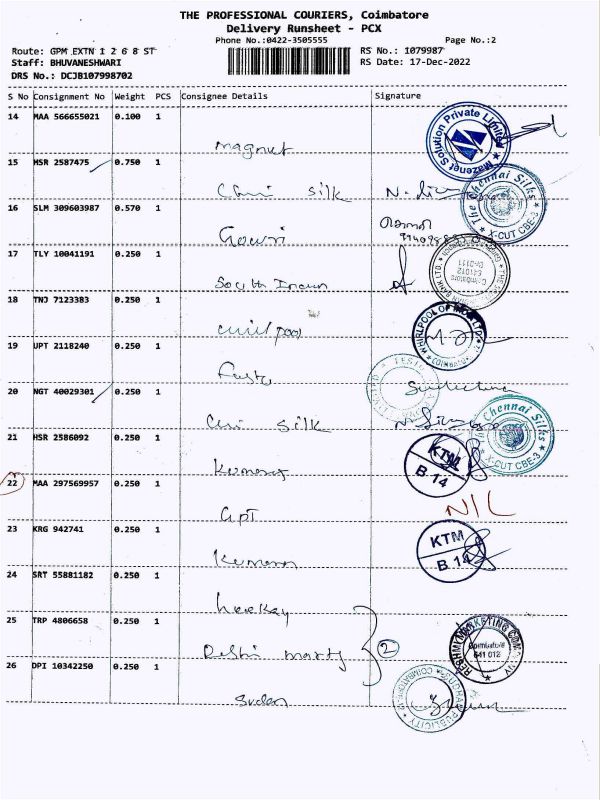 THE PROFESSIONAL COURIERS, Coimbatore
Delivery Runsheet - PCX
Phone No.:0422-3505555 Page No.:2
Route: GPM EXTN 1 2 6 8 ST RS No.: 1079987
Staff: BHUVANESHWARI RS Date: 17-Dec-2022
DRS No.: DCJB107998702
S No Consignment No Weight PCS Consignee Details Signature
14 MAA 566655021 0.100 1
Magnet
Mazenet Solution Private Limited
15 MSR 2587475 0.750 1
silk
The Chennai Silks
X-CUT CBE-3
16 SLM 309603987 0.570 1
Gowri
17 TLY 10041191 0.250 1
South
Coimbatore
641012
18 TNJ 7123383 0.250 1
WHIRLPOOL OF INDIA LTD
COIMBATORE
19 UPT 2118240 0.250 1
20 NGT 40029301 0.250 1
silk
The Chennai Silks
X-CUT CBE-3
21 HSR 2586092 0.250 1
KTM
B.14
22 MAA 297569957 0.250 1
N/L
23 KRG 942741 0.250 1
KTM
B.14
24 SRT 55881182 0.250 1
25 TRP 4806658 0.250 1
2
RESHMI MARKETING COMPANY
Coimbatore
641 012
26 DPI 10342250 0.250 1
PUBLICITY
COIMBATORE-12